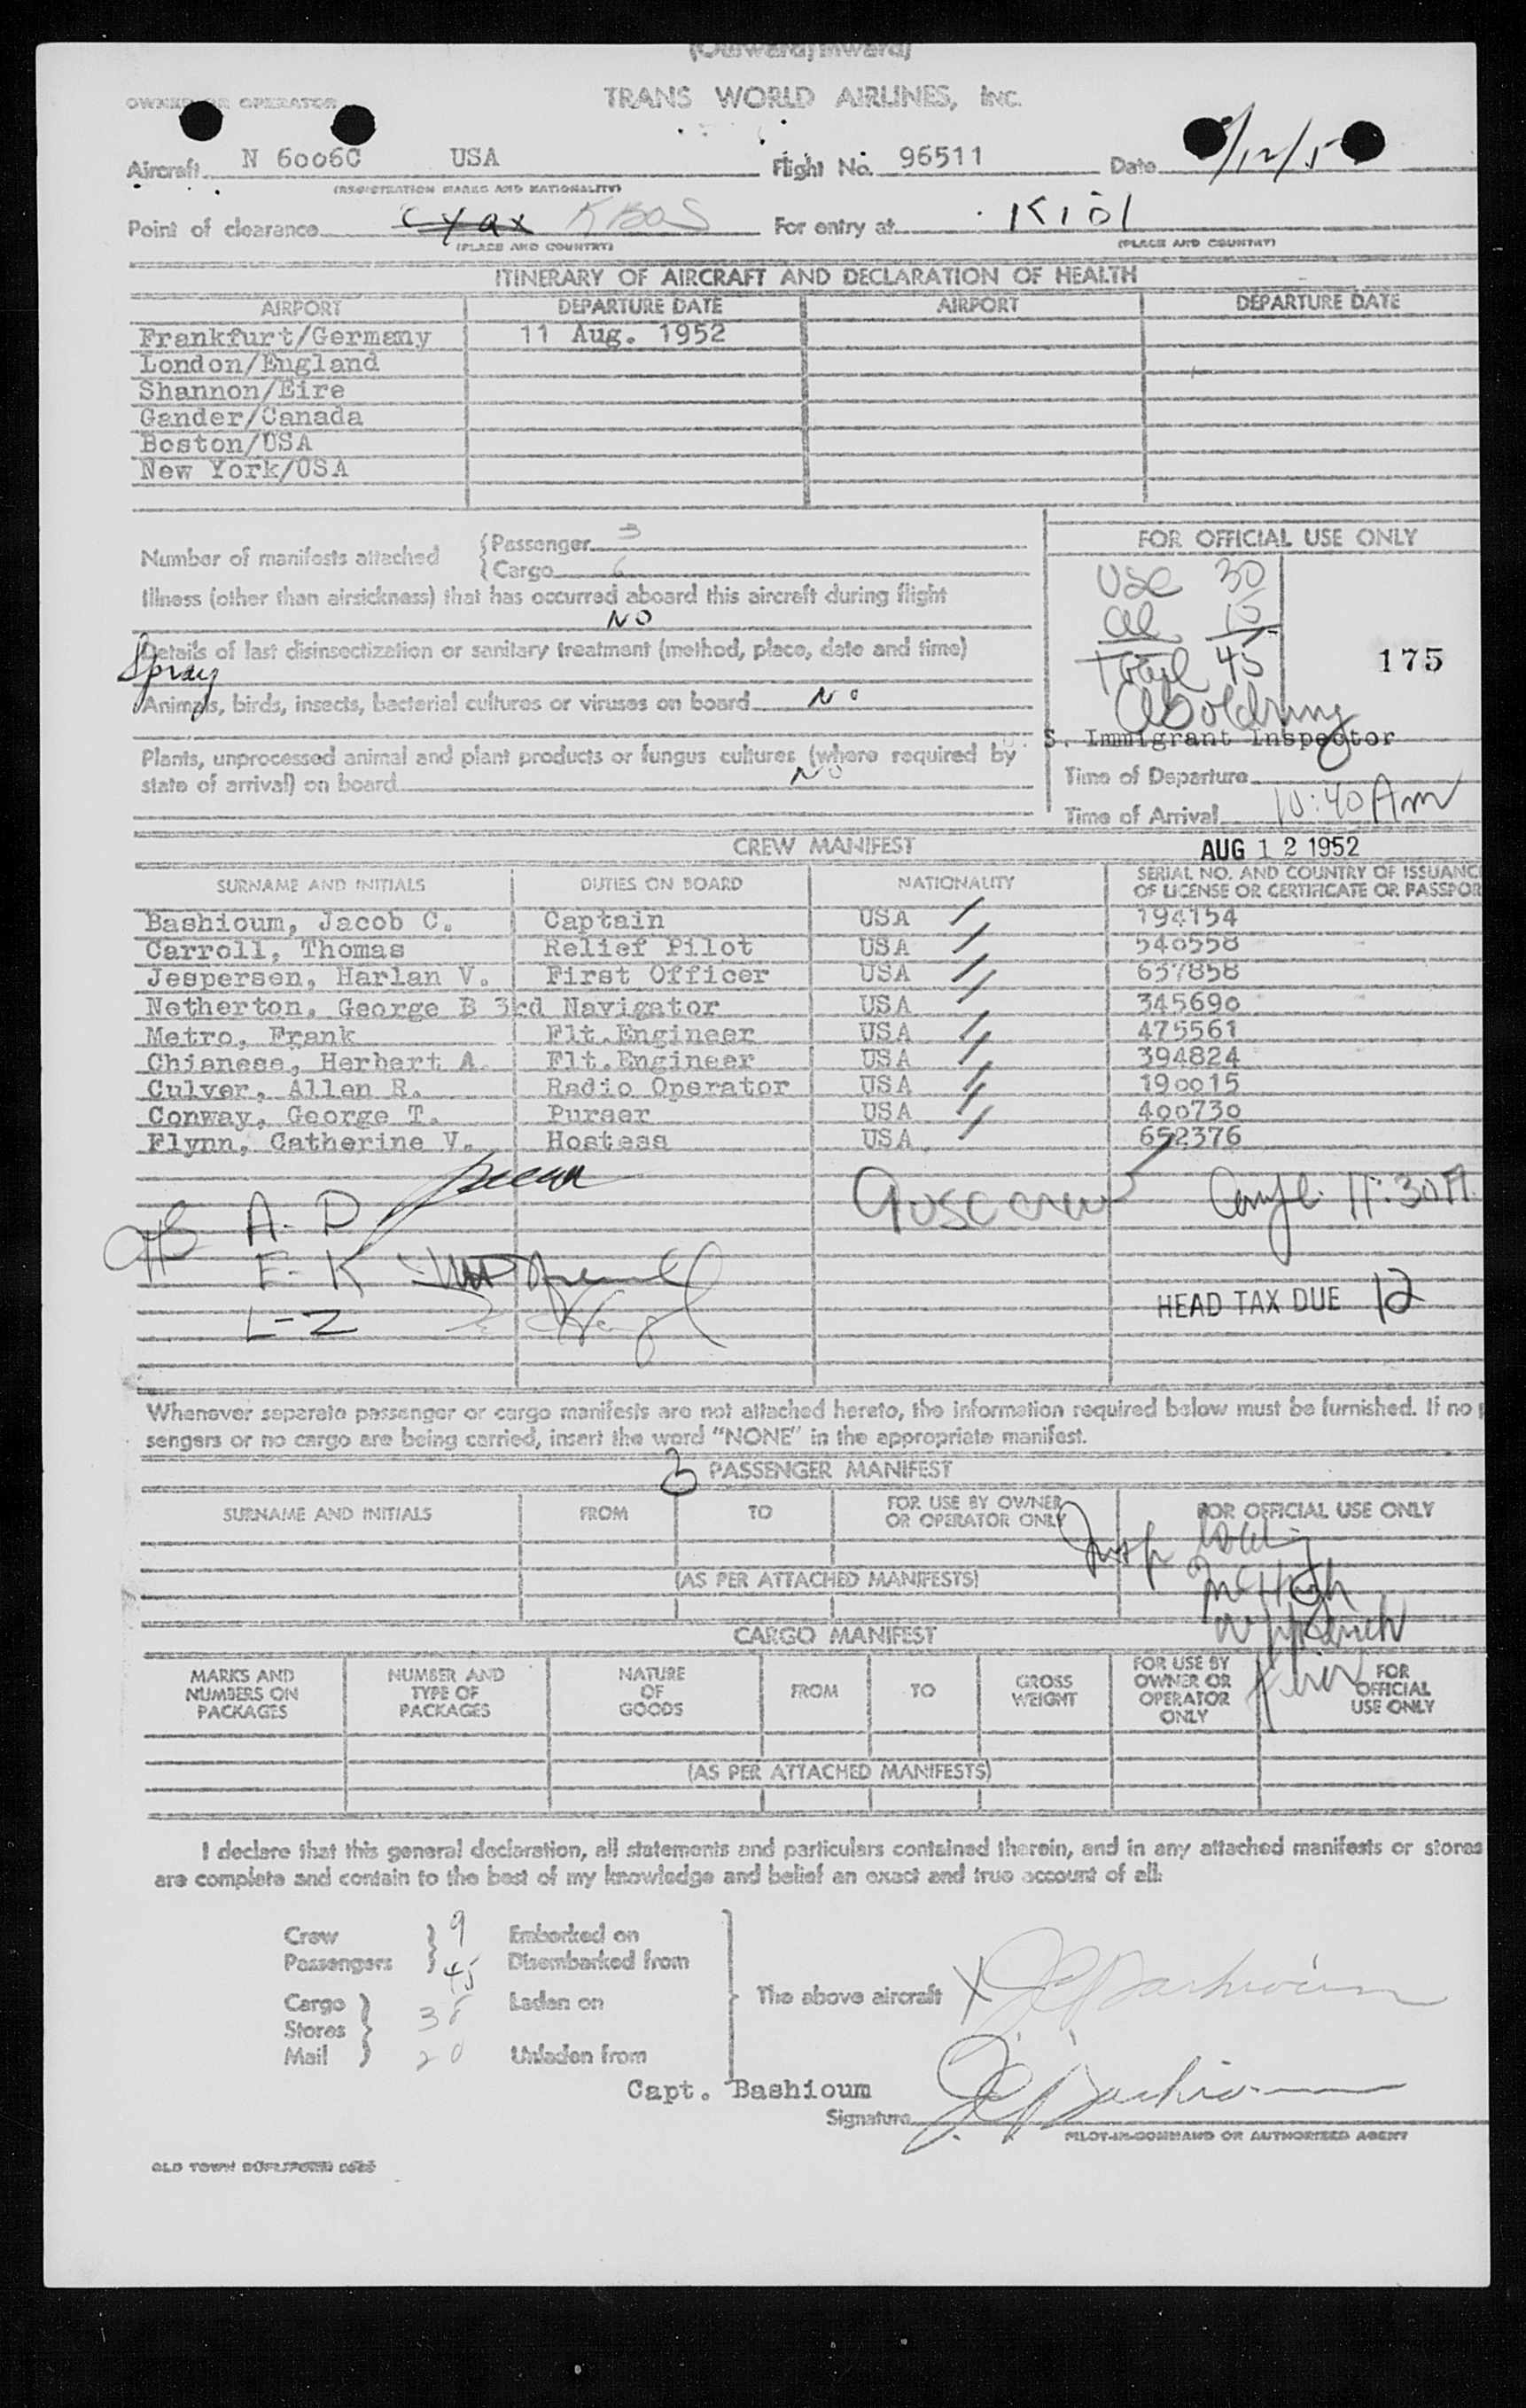 (Outward/Inward)
TRANS WORLD AIRLINES, INC.
OWNER OR OPERATOR
Aircraft N 6006C USA Flight No. 96511 Date /12/5
(REGISTRATION MARKS AND NATIONALITY)
Point of clearance Cyqx KBOS For entry at KIDL
(PLACE AND COUNTRY) (PLACE AND COUNTRY)
ITINERARY OF AIRCRAFT AND DECLARATION OF HEALTH
AIRPORT DEPARTURE DATE AIRPORT DEPARTURE DATE
Frankfurt/Germany 11 Aug. 1952
London/England
Shannon/Eire
Gander/Canada
Boston/USA
New York/USA
FOR OFFICIAL USE ONLY
Number of manifests attached {Passenger 3
{Cargo 6
USC 30
Illness (other than airsickness) that has occurred aboard this aircraft during flight
NO
al 15
Details of last disinsectization or sanitary treatment (method, place, date and time)
Spray
Total 45 175
Animals, birds, insects, bacterial cultures or viruses on board No
S. Immigrant Inspector
Plants, unprocessed animal and plant products or fungus cultures (where required by
state of arrival) on board No
Time of Departure
Time of Arrival 10:40 Am
CREW MANIFEST AUG 12 1952
SURNAME AND INITIALS DUTIES ON BOARD NATIONALITY SERIAL NO. AND COUNTRY OF ISSUANC
OF LICENSE OR CERTIFICATE OR PASSPOR
Bashioum, Jacob C. Captain USA 194154
Carroll, Thomas Relief Pilot USA 540558
Jespersen, Harlan V. First Officer USA 657858
Netherton, George B 3rd Navigator USA 345690
Metro, Frank Flt.Engineer USA 475561
Chianese, Herbert A. Flt.Engineer USA 394824
Culver, Allen R. Radio Operator USA 190015
Conway, George T. Purser USA 400730
Flynn, Catherine V. Hostess USA 652376
A-D 9 USC crew 11:30 A
E-K
HEAD TAX DUE 12
L-Z
Whenever separate passenger or cargo manifests are not attached hereto, the information required below must be furnished. If no p
sengers or no cargo are being carried, insert the word "NONE" in the appropriate manifest.
3 PASSENGER MANIFEST
SURNAME AND INITIALS FROM TO FOR USE BY OWNER
OR OPERATOR ONLY FOR OFFICIAL USE ONLY
(AS PER ATTACHED MANIFESTS)
CARGO MANIFEST
MARKS AND
NUMBERS ON
PACKAGES NUMBER AND
TYPE OF
PACKAGES NATURE
OF
GOODS FROM TO GROSS
WEIGHT FOR USE BY
OWNER OR
OPERATOR
ONLY FOR
OFFICIAL
USE ONLY
(AS PER ATTACHED MANIFESTS)
I declare that this general declaration, all statements and particulars contained therein, and in any attached manifests or stores
are complete and contain to the best of my knowledge and belief an exact and true account of all:
Crew 9 Embarked on
Passengers 45 Disembarked from
Cargo Laden on The above aircraft X JCBashioum
Stores 38
Mail 20 Unladen from
Capt. Bashioum
Signature JCBashioum
PILOT-IN-COMMAND OR AUTHORIZED AGENT